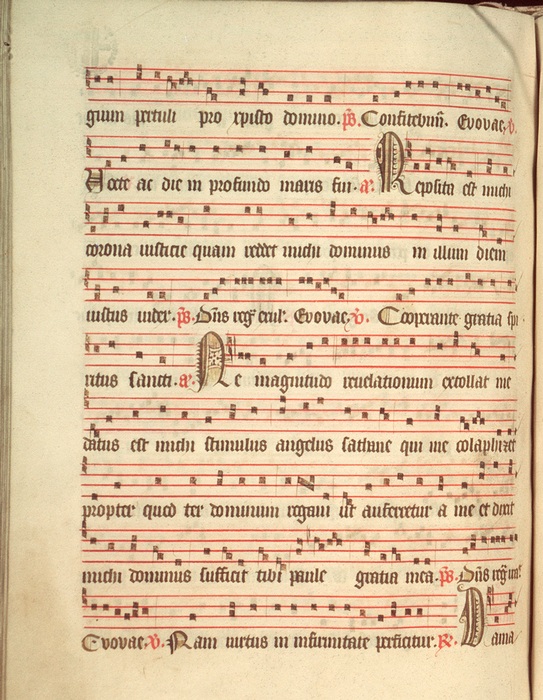 gium pertuli pro xpisto domino. ps. Confitebunt. Evovae. v.
Nocte ac die in profundo maris fui. a. Reposita est michi
corona iusticie quam reddet michi dominus in illum diem
iustus iudex. ps. Dns reg exul. Evovae. v. Cooperante gratia spi
ritus sancti. a. Ne magnitudo revelationum extollat me
datus est michi stimulus angelus sathane qui me colaphizet
propter quod ter dominum rogavi ut auferretur a me et dixit
michi dominus sufficit tibi paule gratia mea. ps. Dns reg
Evovae. v. Nam virtus in infirmitate perficitur. R.